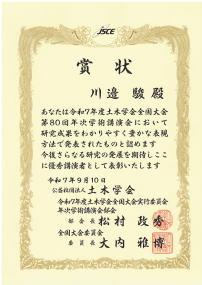 JSCE
賞状
川邉 駿殿
あなたは令和7年度土木学会全国大会
第80回年次学術講演会において
研究成果をわかりやすく豊かな表現
方法で発表されたものと認めます
今後さらなる研究の発展を期待しここ
に優秀講演者として表彰いたします
令和7年9月10日
公益社団法人 土木学会
令和7年度土木学会全国大会実行委員会
年次学術講演会部会
部会長 松村 政秀
全国大会委員会
委員長 大内 雅博